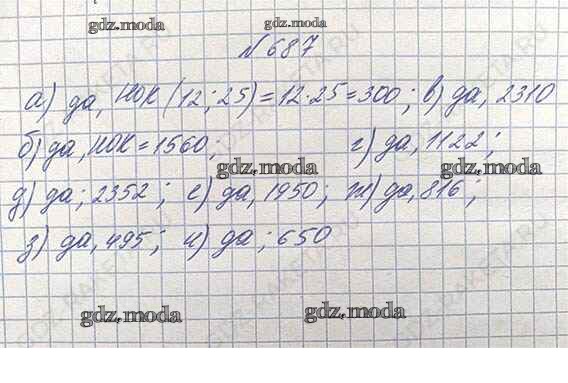 gdz.moda
gdz.moda
№687
а) да, НОК (12; 25) = 12·25 = 300; в) да, 2310
б) да, НОК = 1560; г) да, 1122;
gdz.moda
gdz.moda
д) да; 2352; е) да, 1950; ж) да, 816;
з) да, 495; и) да; 650
gdz.moda
gdz.moda